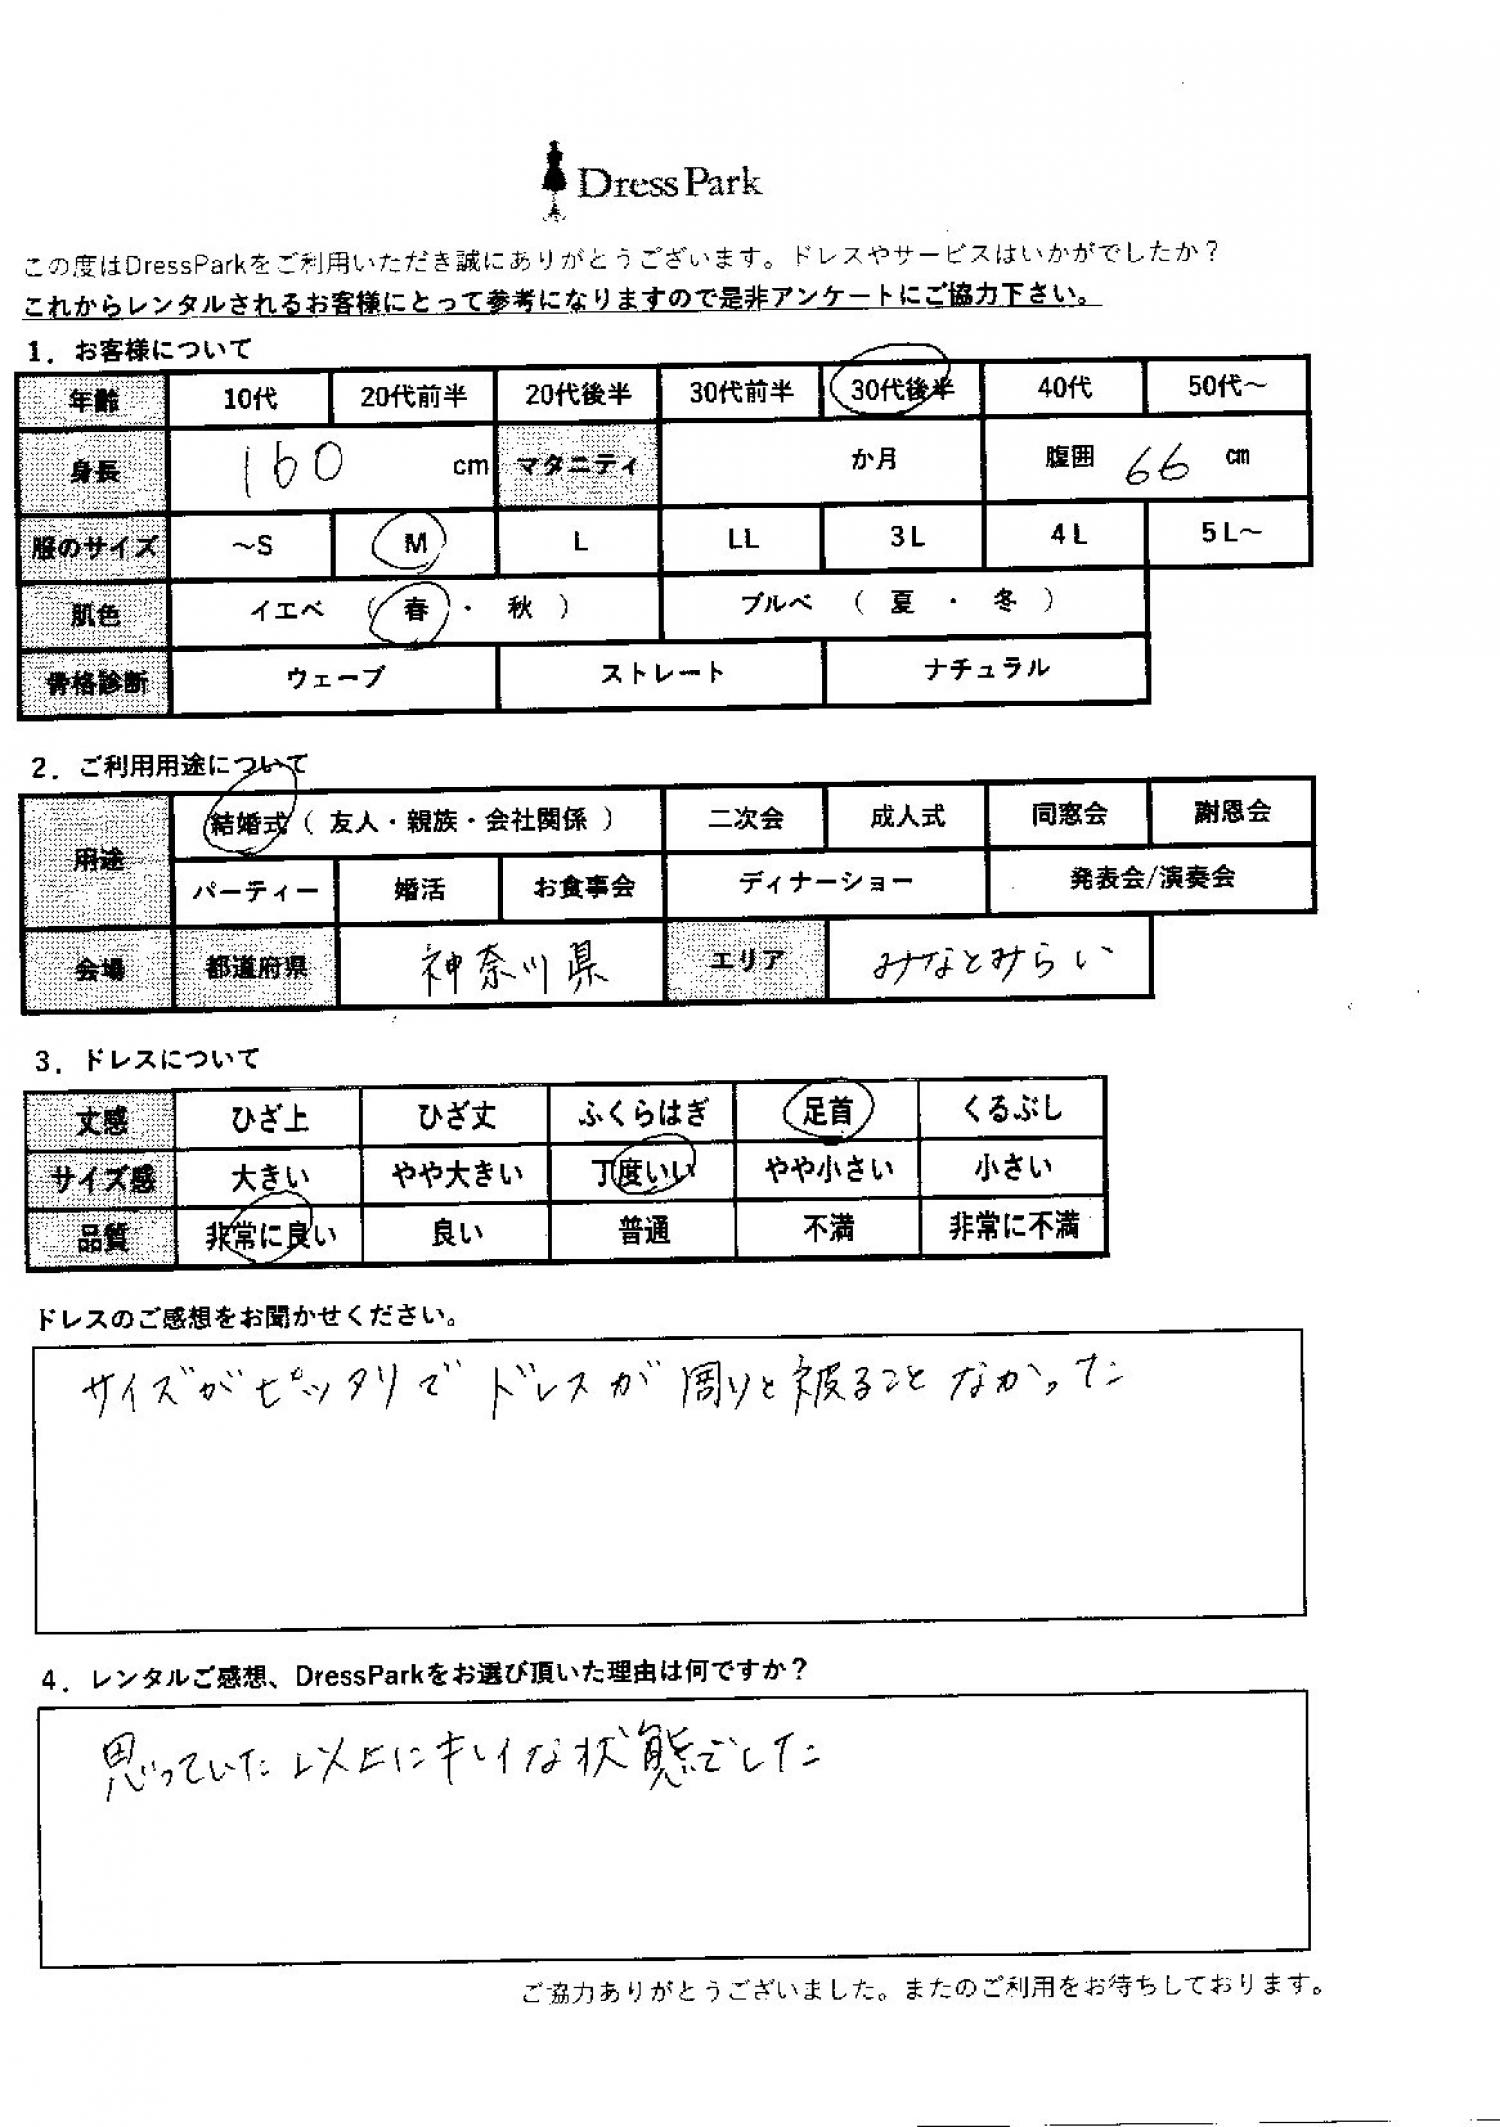 Dress Park
この度はDressParkをご利用いただき誠にありがとうございます。ドレスやサービスはいかがでしたか？
これからレンタルされるお客様にとって参考になりますので是非アンケートにご協力下さい。
1．お客様について
年齢 10代 20代前半 20代後半 30代前半 30代後半 40代 50代～
身長 160 cm マタニティ か月 腹囲 66 cm
服のサイズ ～S M L LL 3L 4L 5L～
肌色 イエベ （ 春 ・ 秋 ） ブルベ （ 夏 ・ 冬 ）
骨格診断 ウェーブ ストレート ナチュラル
2．ご利用用途について
用途 結婚式（ 友人・親族・会社関係 ） 二次会 成人式 同窓会 謝恩会
パーティー 婚活 お食事会 ディナーショー 発表会/演奏会
会場 都道府県 神奈川県 エリア みなとみらい
3．ドレスについて
丈感 ひざ上 ひざ丈 ふくらはぎ 足首 くるぶし
サイズ感 大きい やや大きい 丁度いい やや小さい 小さい
品質 非常に良い 良い 普通 不満 非常に不満
ドレスのご感想をお聞かせください。
サイズがピッタリで ドレスが 周りと被ること なかった
4．レンタルご感想、DressParkをお選び頂いた理由は何ですか？
思っていた以上にキレイな状態でした
ご協力ありがとうございました。またのご利用をお待ちしております。